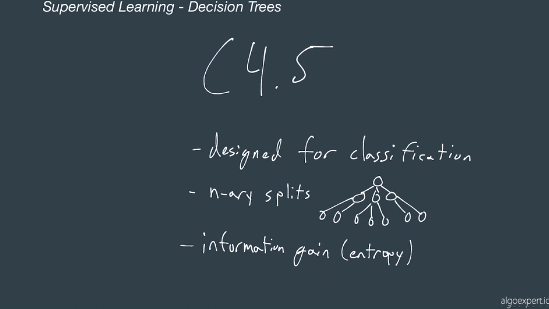 Supervised Learning - Decision Trees
C4.5
- designed for classification
- n-ary splits
- information gain (entropy)
algoexpert.io